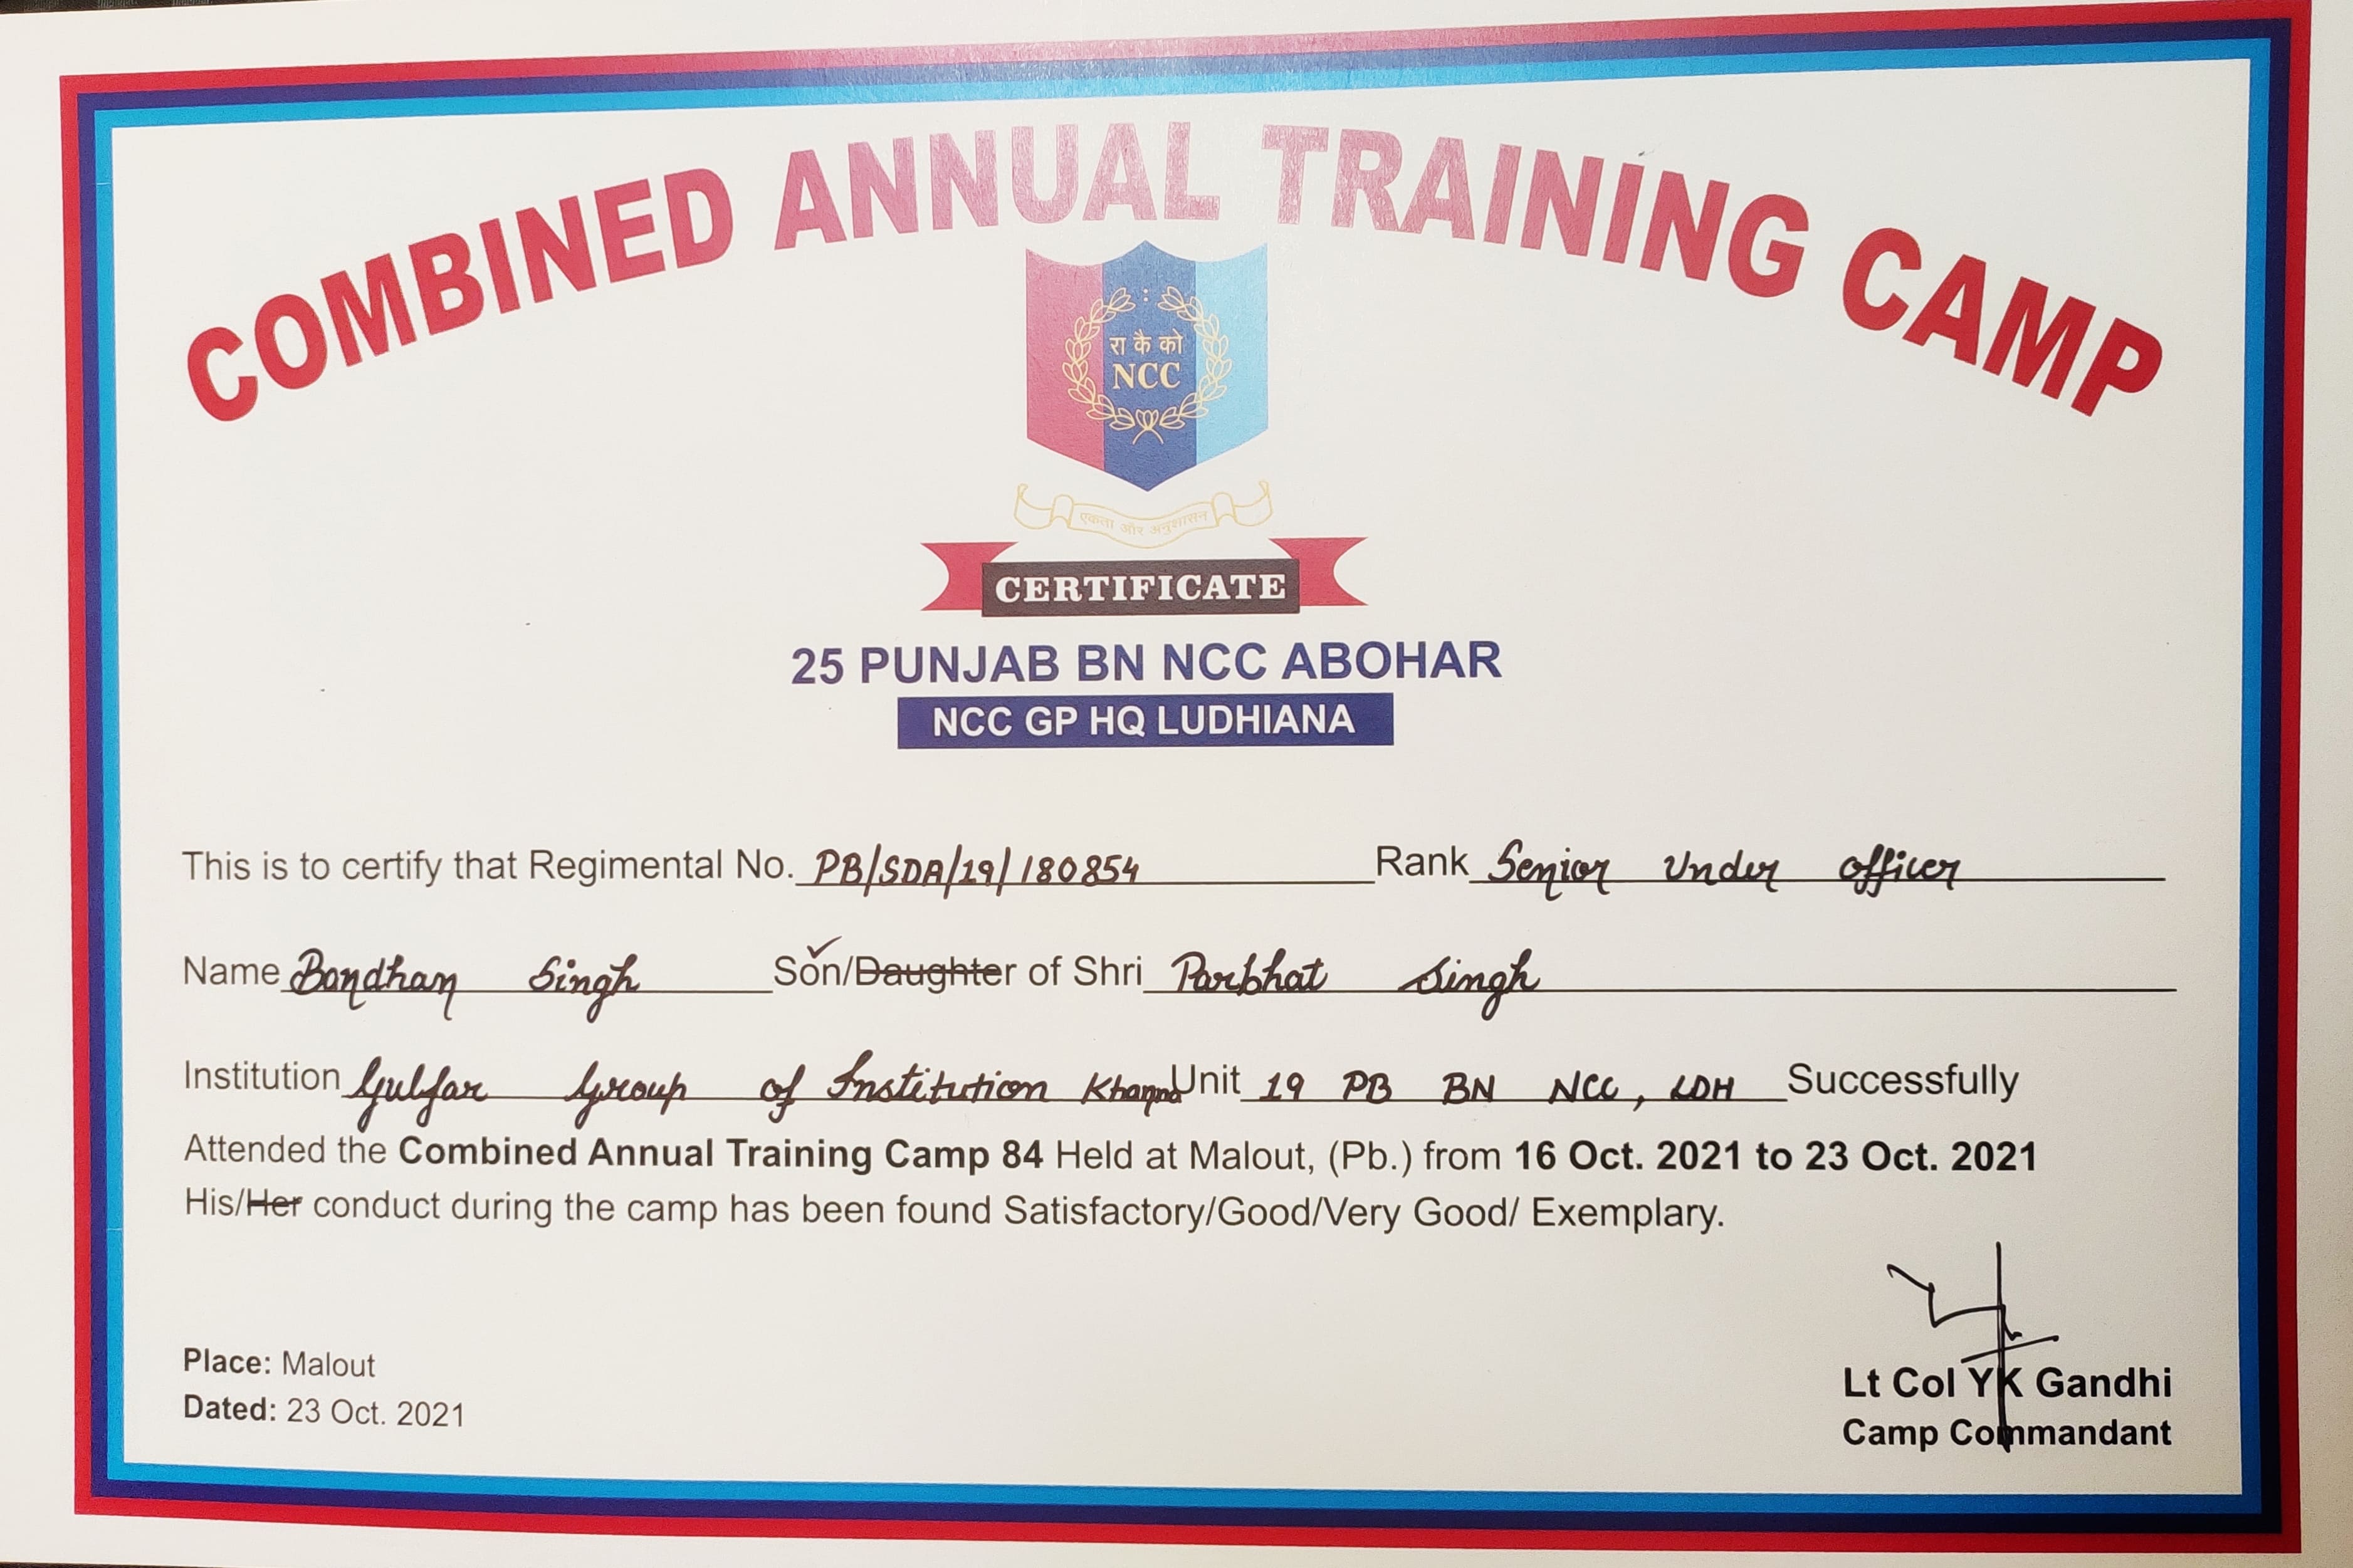 COMBINED ANNUAL TRAINING CAMP
रा कै को
NCC
एकता और अनुशासन
CERTIFICATE
25 PUNJAB BN NCC ABOHAR
NCC GP HQ LUDHIANA
This is to certify that Regimental No. PB/SDA/19/180854 Rank Senior Under Officer
Name Bandhan Singh Son/Daughter of Shri Parbhat Singh
Institution Gulzar Group of Institution Khanna Unit 19 PB BN NCC, LDH Successfully
Attended the Combined Annual Training Camp 84 Held at Malout, (Pb.) from 16 Oct. 2021 to 23 Oct. 2021
His/Her conduct during the camp has been found Satisfactory/Good/Very Good/ Exemplary.
Place: Malout
Dated: 23 Oct. 2021
Lt Col YK Gandhi
Camp Commandant